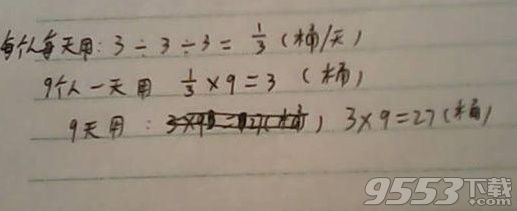 每个人每天用: 3÷3÷3=1/3(桶/天)
9个人一天用 1/3×9=3 (桶)
9天用: 3×9=27(桶)
9553下载
.com